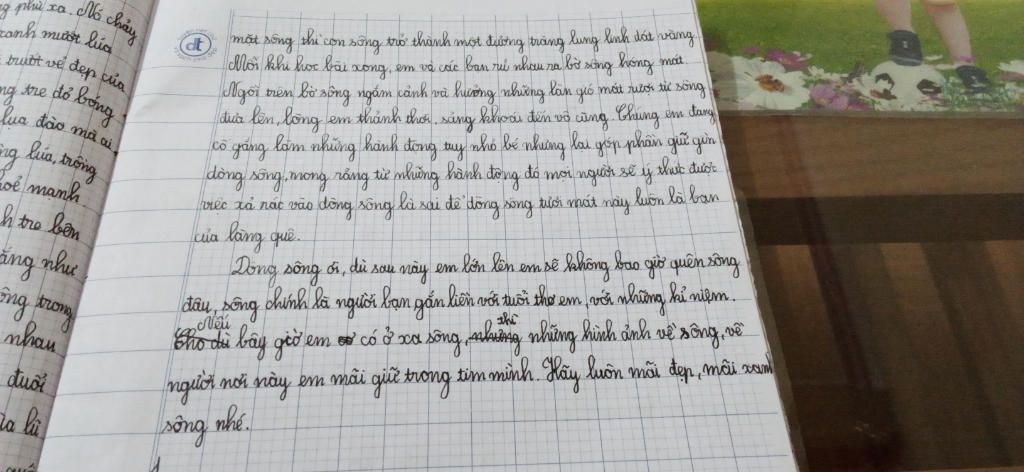 g phù xa. Nó chảy
xanh mướt lúa
trước vẻ đẹp của
ng tre đỏ bóng
lụa đào mà ai
ng lúa, trông
khoẻ mạnh
h tre bên
ăng như
ông trong
nhau
đuổi
ìa lũ
dt
mặt sông thì con sông trở thành một đường trăng lung linh dát vàng
Mỗi khi học bài xong, em và các bạn rủ nhau ra bờ sông hóng mát.
Ngồi trên bờ sông ngắm cảnh và hưởng những làn gió mát rượi từ sông
đưa lên, lòng em thảnh thơi, sảng khoái đến vô cùng. Chúng em đang
cố gắng làm những hành động tuy nhỏ bé nhưng lại góp phần giữ gìn
dòng sông, mong rằng từ những hành động đó mọi người sẽ ý thức được
việc xả rác vào dòng sông là sai để dòng sông tươi mát này luôn là bạn
của làng quê.
Dòng sông ơi, dù sau này em lớn lên em sẽ không bao giờ quên sông
đâu, sông chính là người bạn gắn liền với tuổi thơ em, với những kỉ niệm.
Nếu bây giờ em có ở xa sông, thì những hình ảnh về sông, về
người nơi này em mãi giữ trong tim mình. Hãy luôn mãi đẹp, mãi xanh
sông nhé.